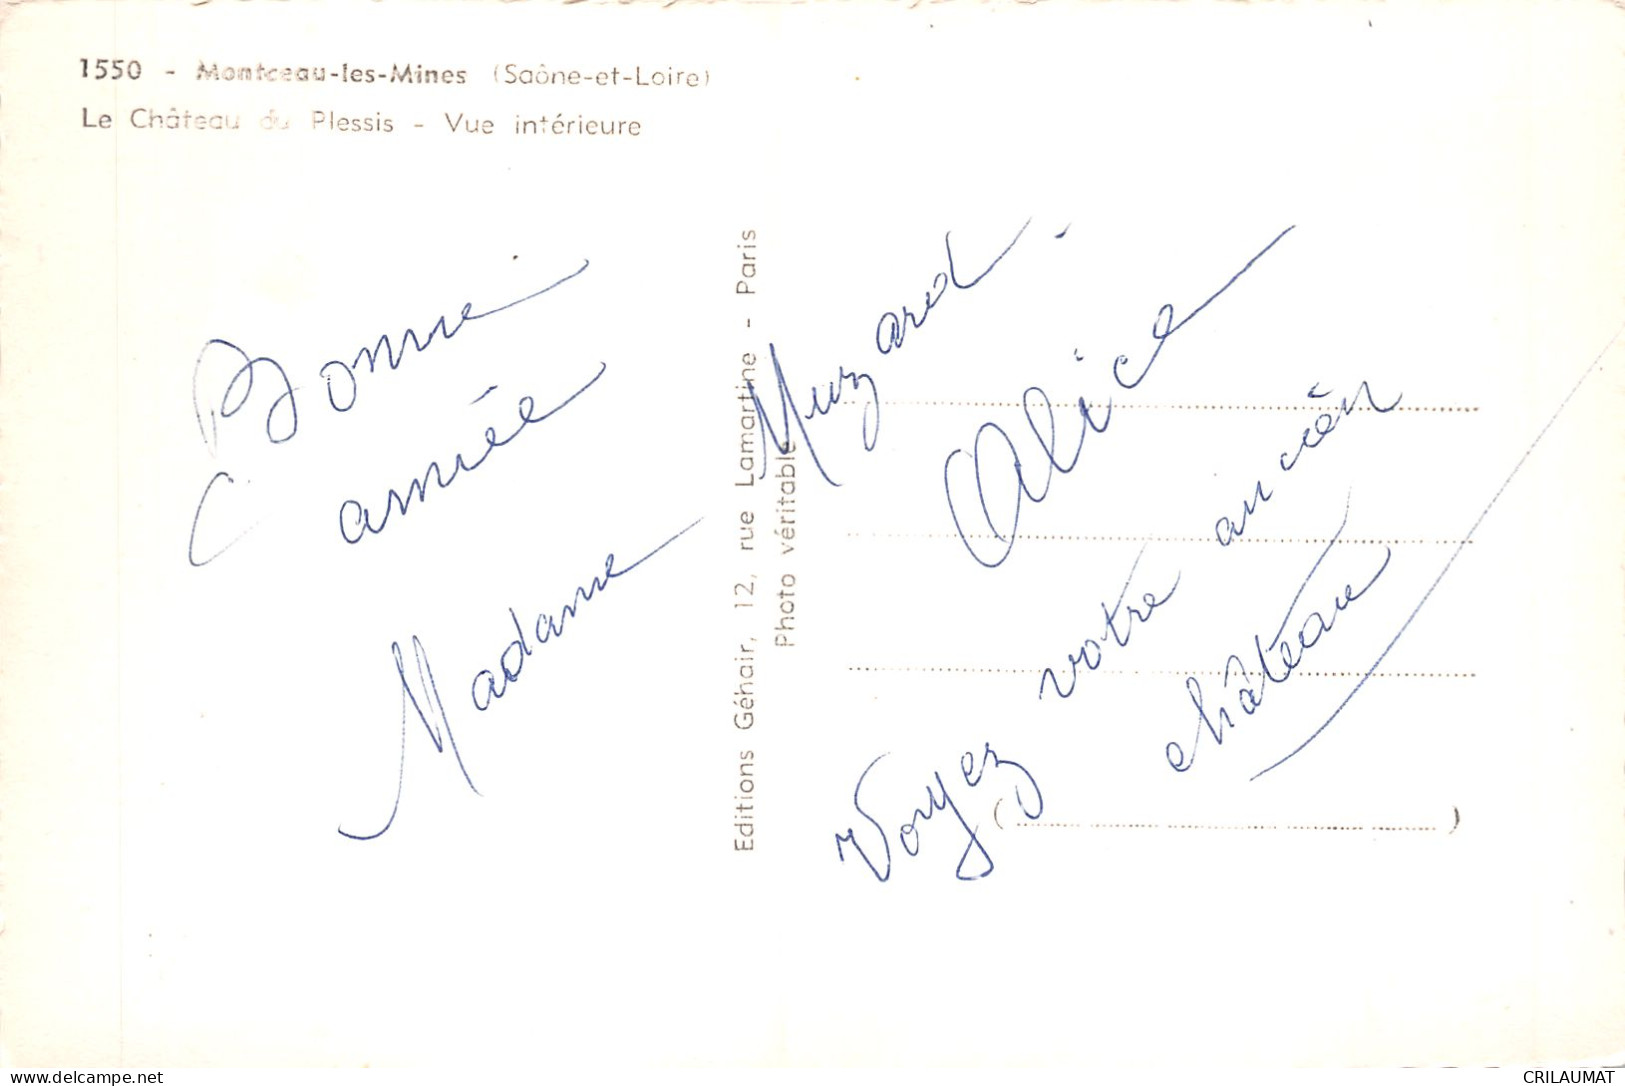 1550 - Montceau-les-Mines (Saône-et-Loire)
Le Château du Plessis - Vue intérieure
Bonne
année
Madame
Editions Géhair, 12, rue Lamartine - Paris
Photo véritable
Muzard.
Alice
Voyez votre ancien
château
(                    )
www.delcampe.net
CRILAUMAT